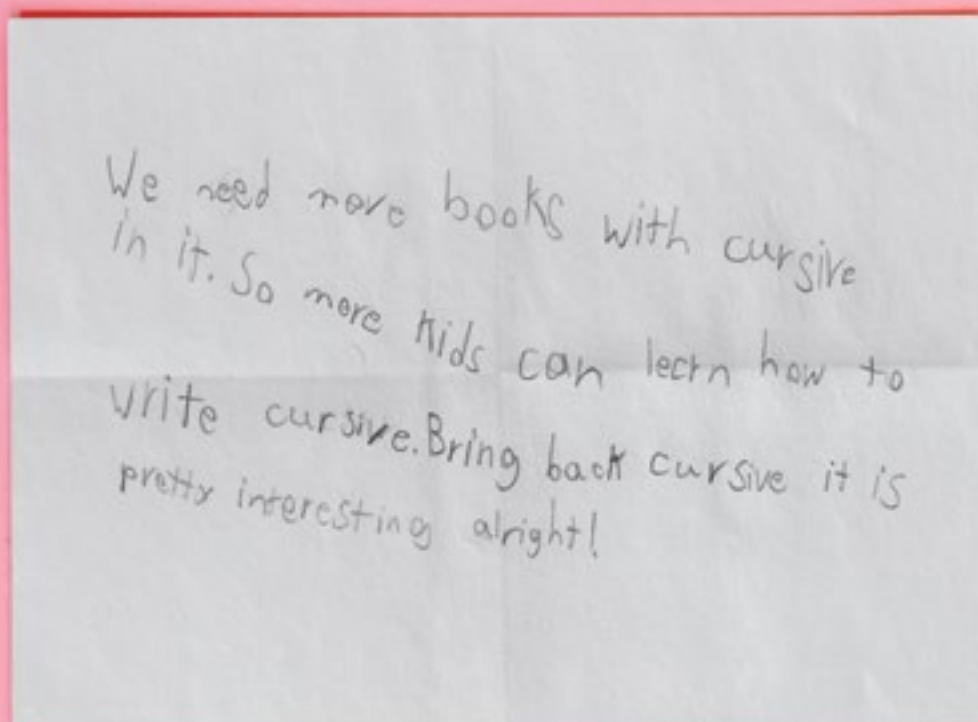 We need more books with cursive
in it. So more kids can learn how to
write cursive. Bring back cursive it is
pretty interesting alright!